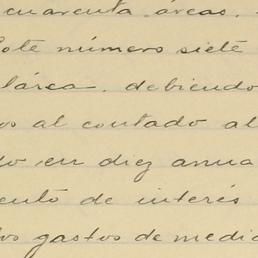 cuarenta áreas.
Lote número siete
lárea, debiendo
os al contado al
do en diez anua
ento de interés
los gastos de medic